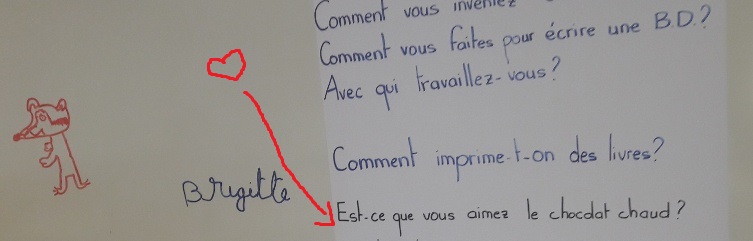 Comment vous inventez
Comment vous faites pour écrire une B.D.?
Avec qui travaillez-vous?
Comment imprime-t-on des livres?
Brigitte
Est-ce que vous aimez le chocolat chaud?